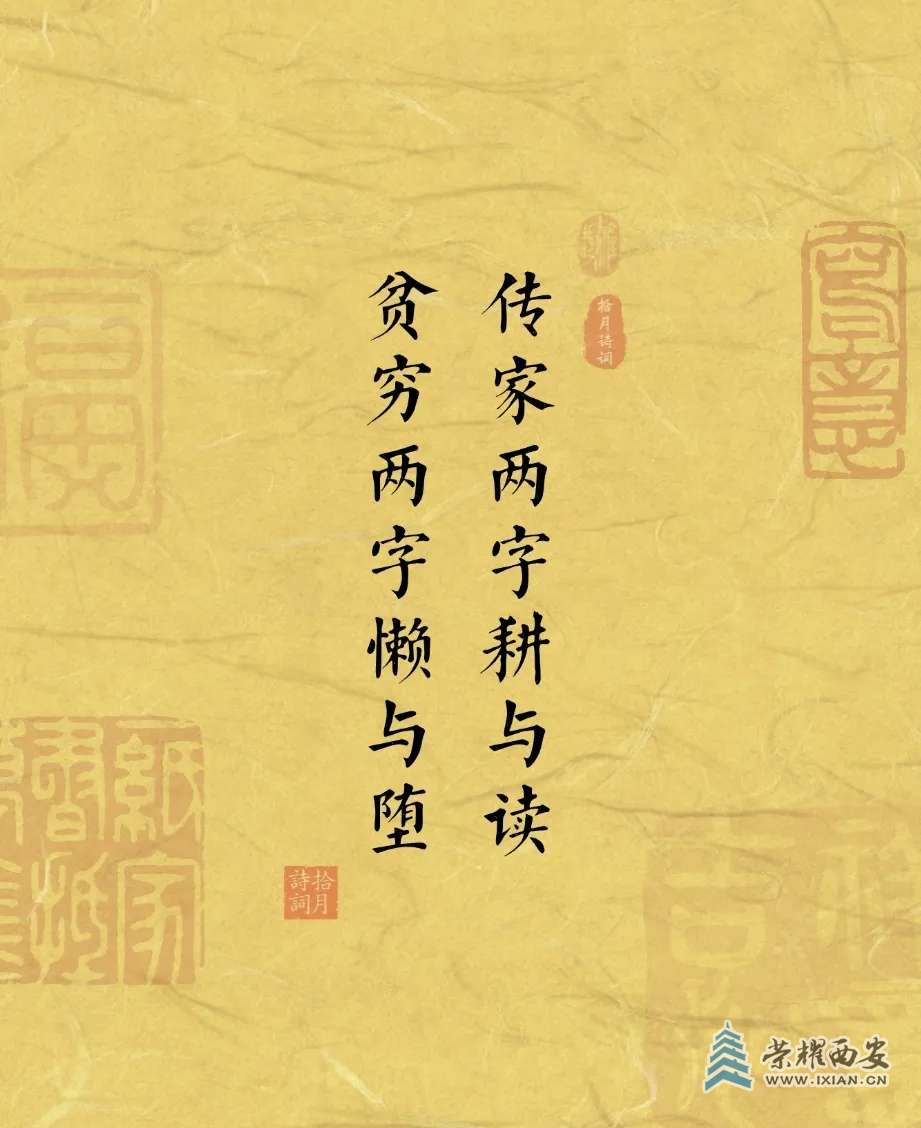 传家两字耕与读
贫穷两字懒与堕
拾月诗词
拾月
詩詞
荣耀西安
WWW.IXIAN.CN